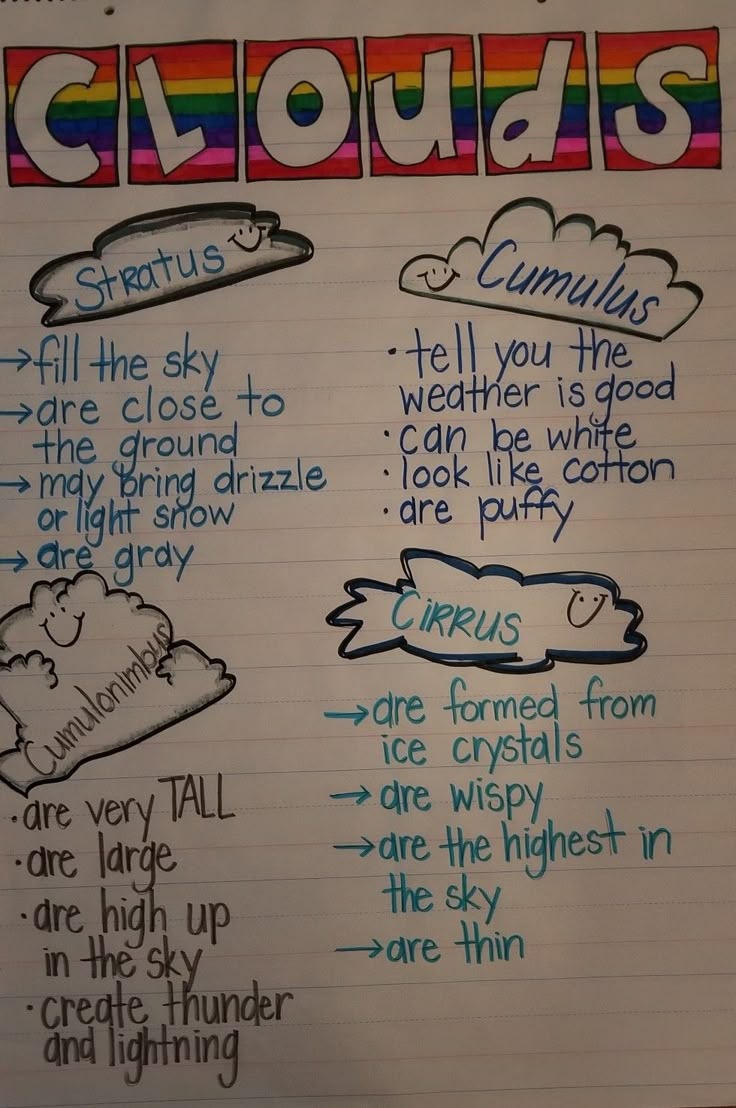 CLOudS
Stratus
→fill the sky
→are close to
the ground
→may bring drizzle
or light snow
→are gray
Cumulus
·tell you the
weather is good
·can be white
·look like cotton
·are puffy
Cumulonimbus
·are very TALL
·are large
·are high up
in the sky
·create thunder
and lightning
CiRRUS
→are formed from
ice crystals
→are wispy
→are the highest in
the sky
→are thin